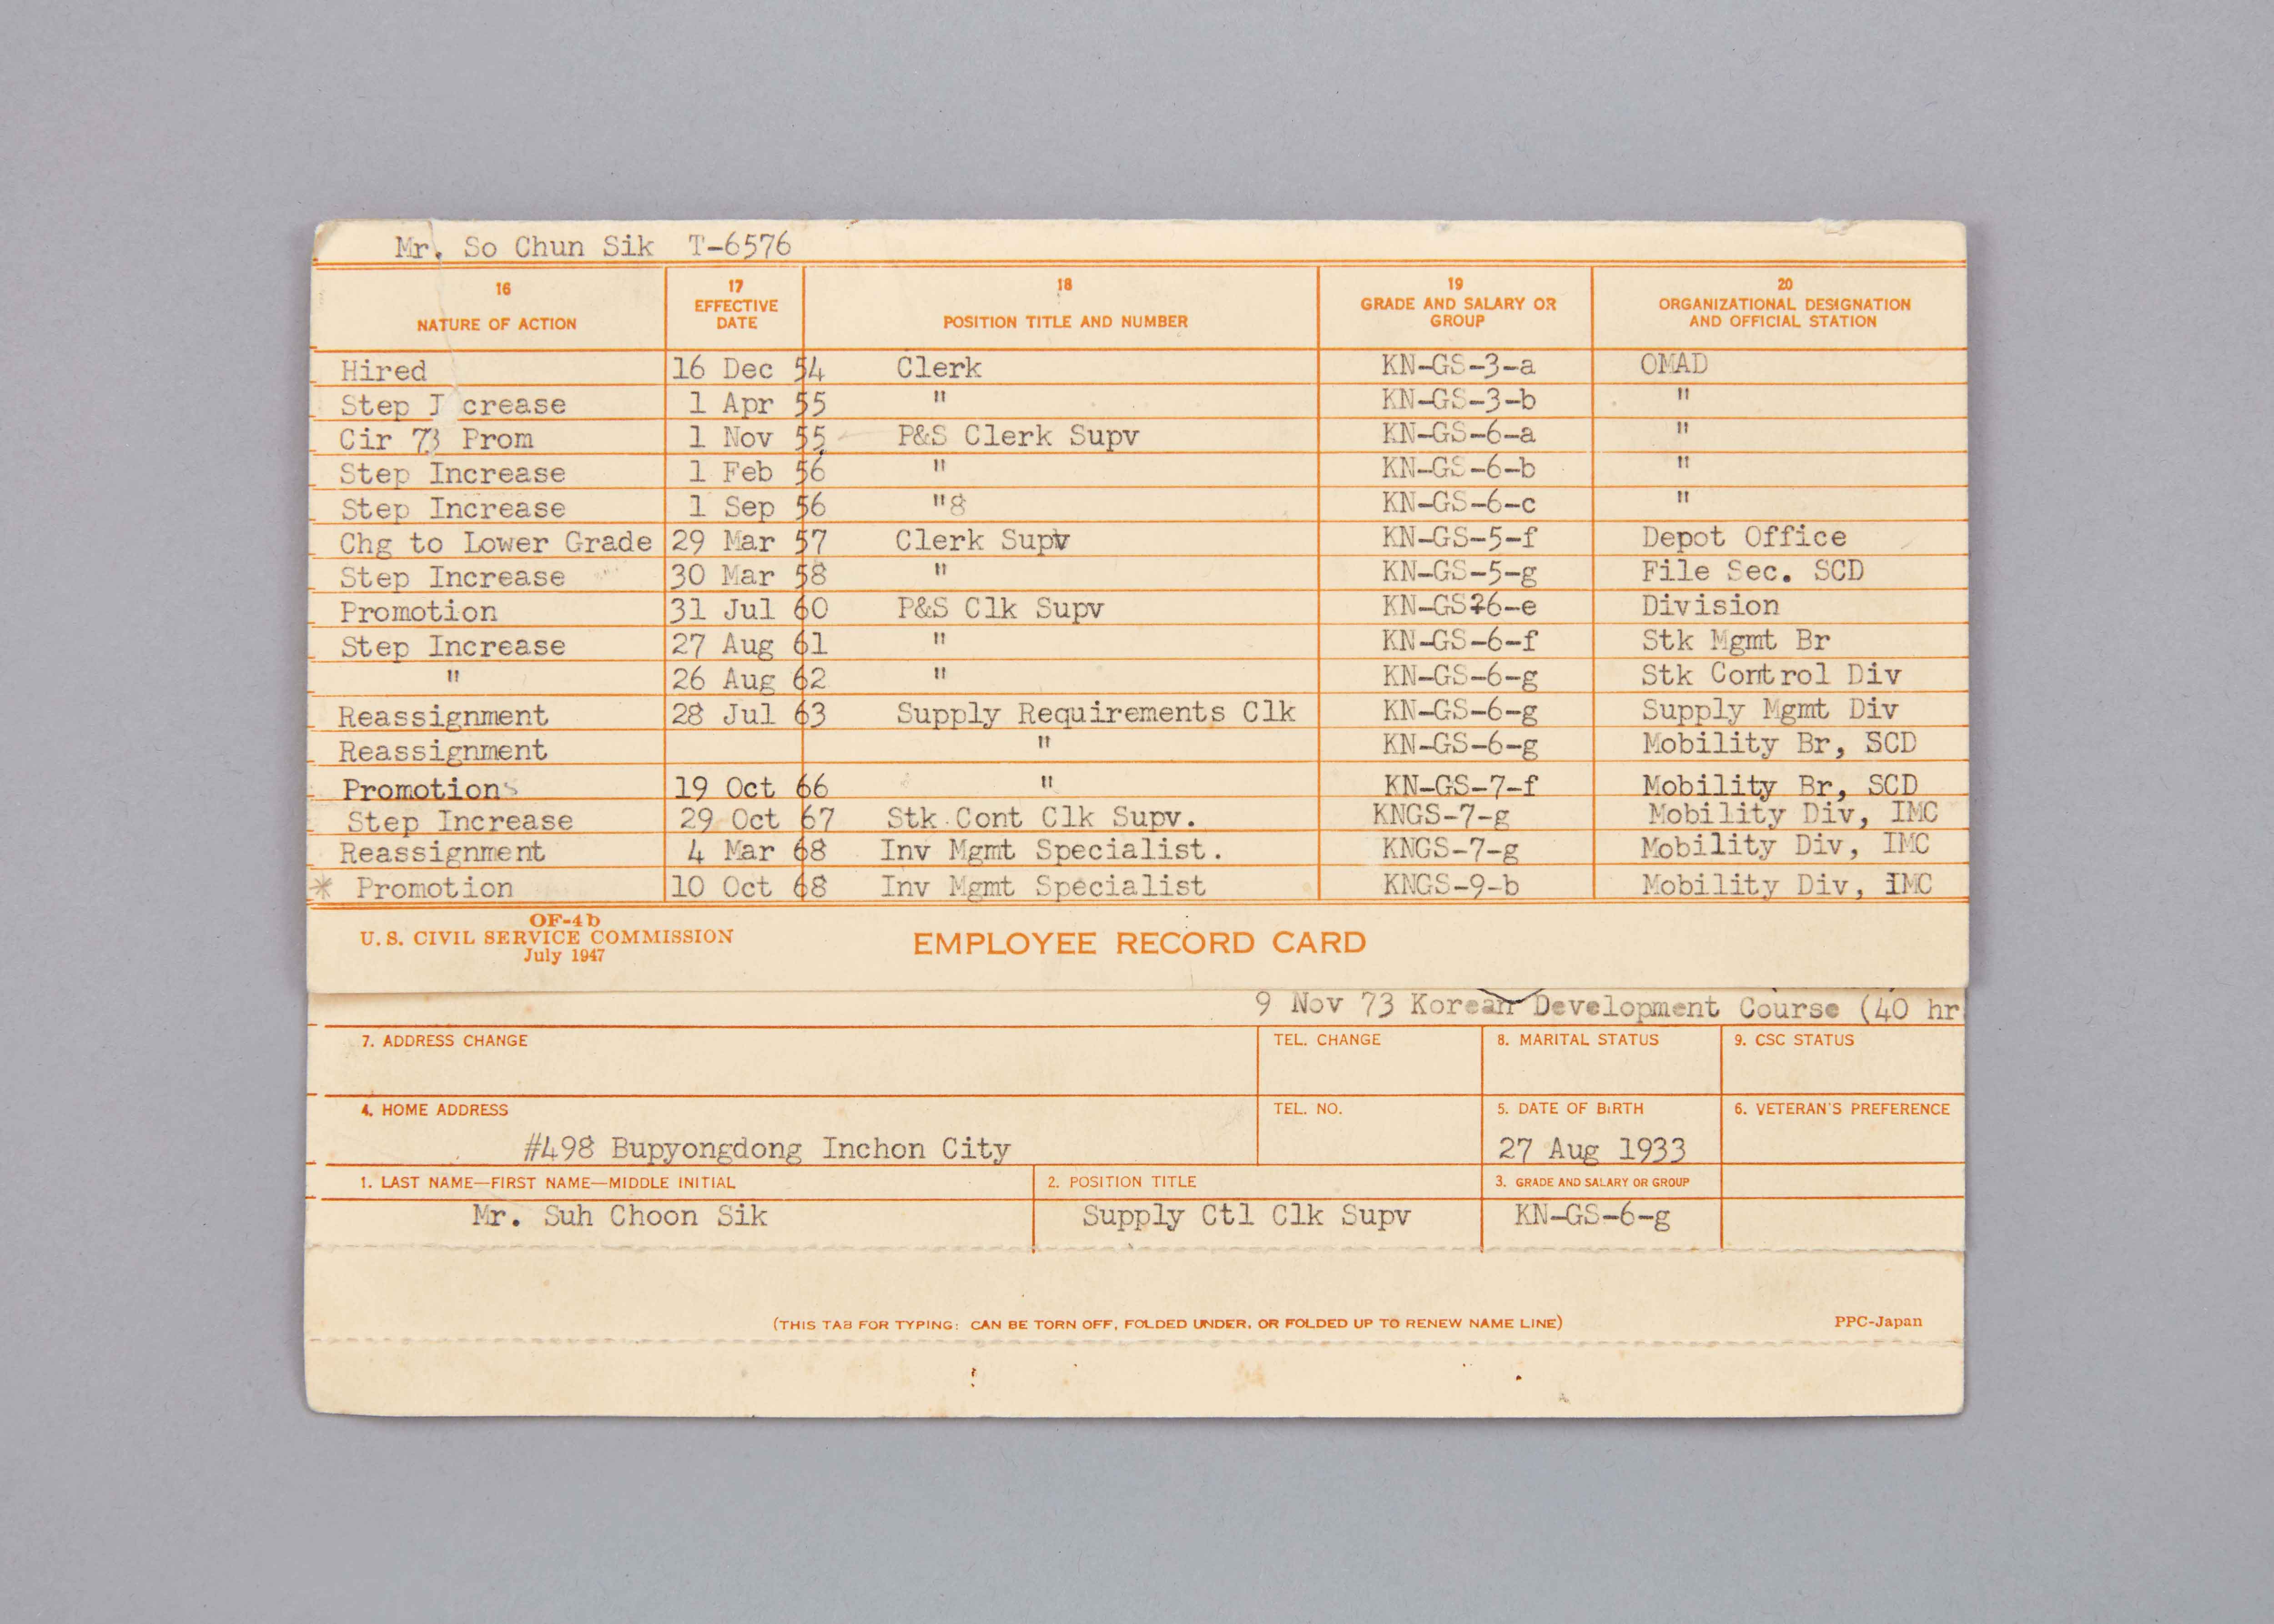 Mr. So Chun Sik T-6576
16 NATURE OF ACTION 17 EFFECTIVE DATE 18 POSITION TITLE AND NUMBER 19 GRADE AND SALARY OR GROUP 20 ORGANIZATIONAL DESIGNATION AND OFFICIAL STATION
Hired 16 Dec 54 Clerk KN-GS-3-a OMAD
Step I crease 1 Apr 55 " KN-GS-3-b "
Cir 73 Prom 1 Nov 55 P&S Clerk Supv KN-GS-6-a "
Step Increase 1 Feb 56 " KN-GS-6-b "
Step Increase 1 Sep 56 "8 KN-GS-6-c "
Chg to Lower Grade 29 Mar 57 Clerk Supv KN-GS-5-f Depot Office
Step Increase 30 Mar 58 " KN-GS-5-g File Sec. SCD
Promotion 31 Jul 60 P&S Clk Supv KN-GS-6-e Division
Step Increase 27 Aug 61 " KN-GS-6-f Stk Mgmt Br
" 26 Aug 62 " KN-GS-6-g Stk Control Div
Reassignment 28 Jul 63 Supply Requirements Clk KN-GS-6-g Supply Mgmt Div
Reassignment " KN-GS-6-g Mobility Br, SCD
Promotions 19 Oct 66 " KN-GS-7-f Mobility Br, SCD
Step Increase 29 Oct 67 Stk Cont Clk Supv. KNGS-7-g Mobility Div, IMC
Reassignment 4 Mar 68 Inv Mgmt Specialist. KNGS-7-g Mobility Div, IMC
* Promotion 10 Oct 68 Inv Mgmt Specialist KNGS-9-b Mobility Div, IMC
OF-4b
U. S. CIVIL SERVICE COMMISSION EMPLOYEE RECORD CARD
July 1947
9 Nov 73 Korean Development Course (40 hr
7. ADDRESS CHANGE TEL. CHANGE 8. MARITAL STATUS 9. CSC STATUS
4. HOME ADDRESS TEL. NO. 5. DATE OF BIRTH 6. VETERAN'S PREFERENCE
#498 Bupyongdong Inchon City 27 Aug 1933
1. LAST NAME—FIRST NAME—MIDDLE INITIAL 2. POSITION TITLE 3. GRADE AND SALARY OR GROUP
Mr. Suh Choon Sik Supply Ctl Clk Supv KN-GS-6-g
(THIS TAB FOR TYPING: CAN BE TORN OFF, FOLDED UNDER, OR FOLDED UP TO RENEW NAME LINE) PPC-Japan